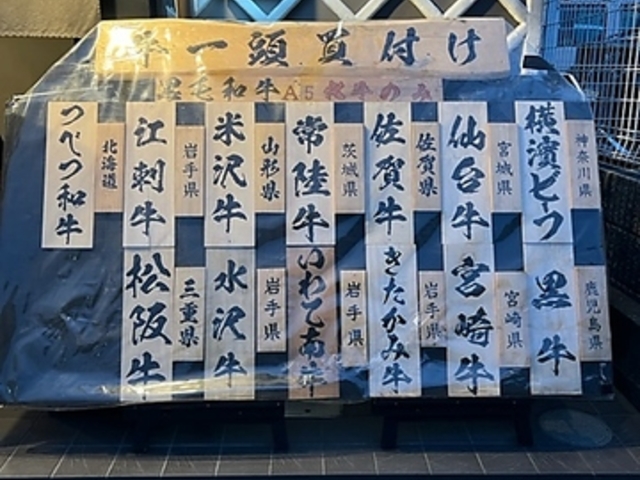 牛一頭買付け
黒毛和牛A5雌牛のみ
神奈川県
横濱ビーフ
宮城県
仙台牛
佐賀県
佐賀牛
茨城県
常陸牛
山形県
米沢牛
岩手県
江刺牛
北海道
つべつ和牛
鹿児島県
黒牛
宮崎県
宮崎牛
岩手県
きたかみ牛
岩手県
いわて南牛
岩手県
水沢牛
三重県
松阪牛